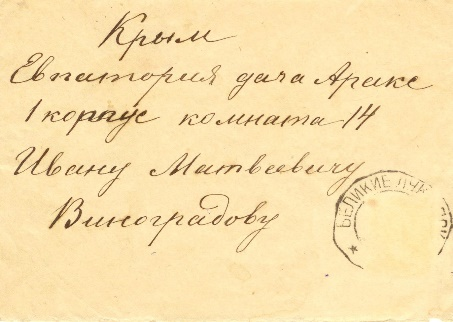 Крым
Евпатория дача Аракс
1 корпус комната 14
Ивану Матвеевичу
Виноградову
ВЕЛИКИЕ